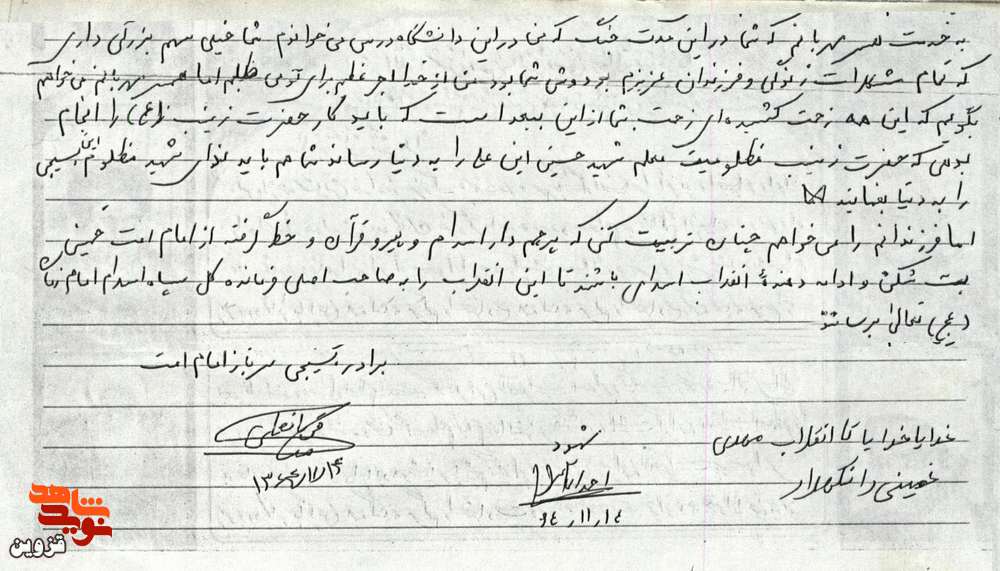 به خدمت همسر مهربانم که شما در این مدت جنگ که من در این دانشگاه درس می خوانم شما خیلی سهم بزرگی داری
که تمام مشکلات زندگی و فرزندان عزیزم بر دوش شما بود من از خدا اجر عظیم برای تو می طلبم اما همسر مهربانم می خواهم
بگویم که این همه زحمت کشیده ای زحمت شما از این ببعد است که باید کار حضرت زینب (ع) را انجام
بدهی که حضرت زینب مظلومیت معلم شهید حسین ابن علی را به دنیا رساند شما هم باید ندای شهید مظلوم بسیجی
را به دنیا بفهمانید
اما فرزندانم را می خواهم چنان تربیت کنی که پرچم دار اسلام و پیرو قرآن و خط گرفته از امام امت خمینی
بت شکن و ادامه دهندهٔ انقلاب اسلامی باشند تا این انقلاب را به صاحب اصلی فرمانده کل سپاه اسلام امام زمان
(عج) تعالی برسانند
برادر بسیجی سرباز امام امت
خدایا خدایا تا انقلاب مهدی
خمینی را نگهدار
شهود
۶۴/۱۱/۱۴
۱۳۶۴/۱۱/۱۴
نوید شاهد
قزوین